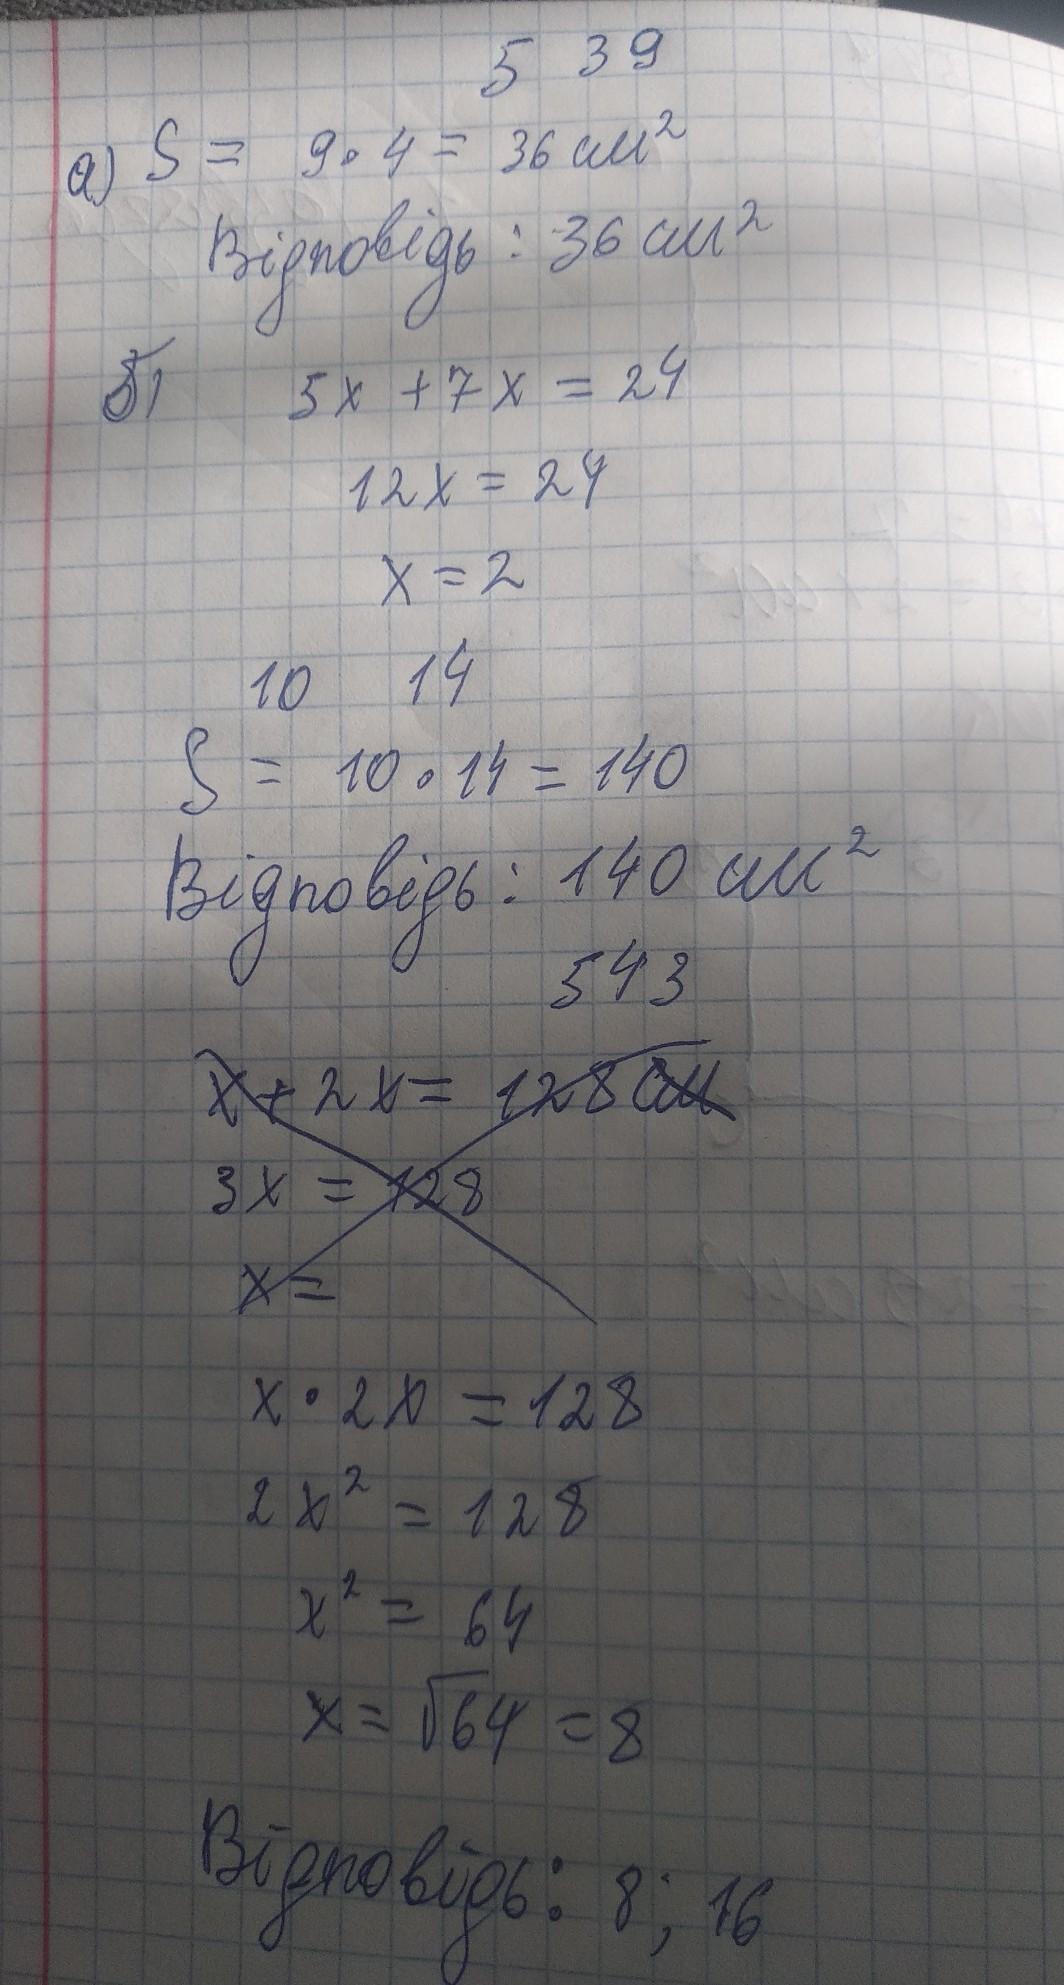 539
а) S = 9 · 4 = 36 см²
Відповідь : 36 см²
б) 5x + 7x = 24
12x = 24
x = 2
10 14
S = 10 · 14 = 140
Відповідь : 140 см²
543
x + 2x = 128 см
3x = 128
x =
x · 2x = 128
2x² = 128
x² = 64
x = √64 = 8
Відповідь : 8; 16